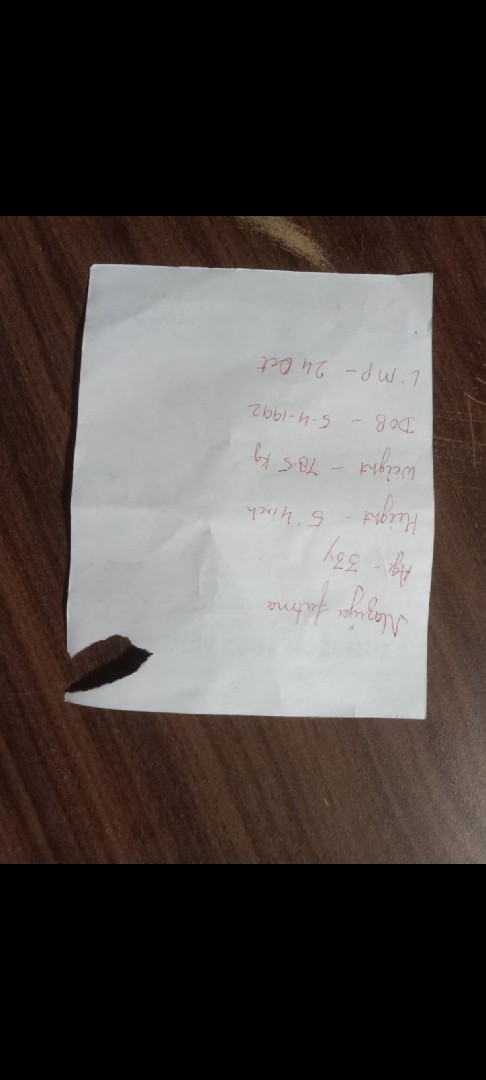 Naziya fatma
Age - 33y
Height - 5'4inch
Weight - 78.5 kg
DOB - 5-4-1992
L.MP - 24 Oct